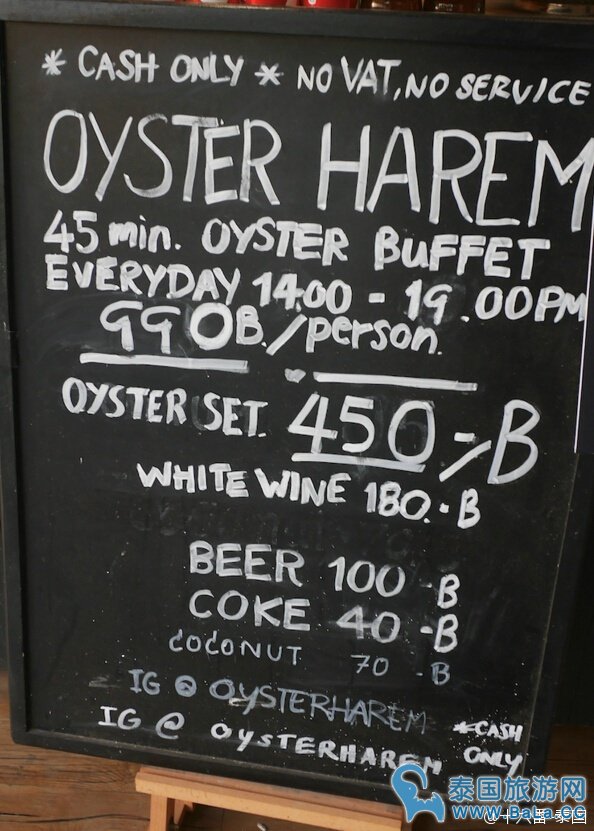 * CASH ONLY * NO VAT, NO SERVICE
OYSTER HAREM
45 min. OYSTER BUFFET
EVERYDAY 14.00 - 19.00PM
990B./person.
OYSTER SET. 450-/B
WHITE WINE 180.-B
BEER 100-B
COKE 40-B
COCONUT 70-B
IG @ OYSTERHAREM
IG @ OYSTERHAREM
*CASH
ONLY
泰国旅游网
www.Bata.CC
@十六番·泰国